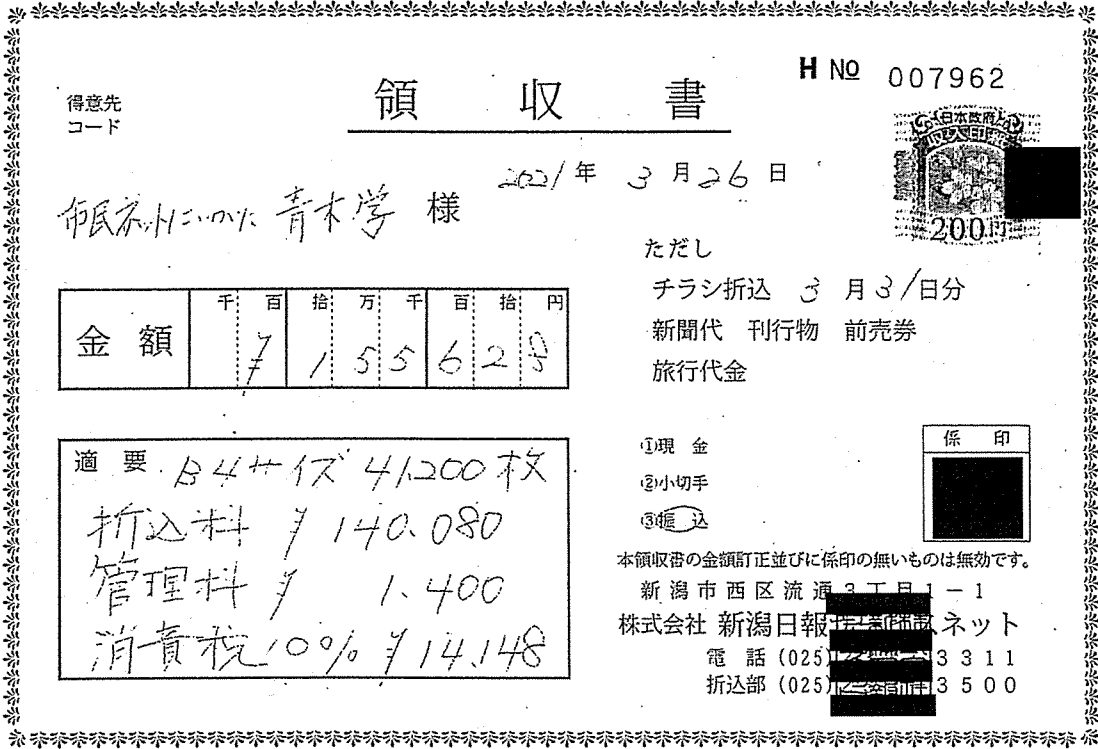 H No 007962
得意先
コード
領収書
日本政府
収入印紙
200円
2021年 3月26日
市民ネットにいがた 青木学 様
ただし
チラシ折込 3月31日分
新聞代 刊行物 前売券
旅行代金
金額 千 百 拾 万 千 百 拾 円
¥155628
適要 B4サイズ 41,200枚
折込料 ¥140,080
管理料 ¥1,400
消費税10% ¥14,148
①現金
②小切手
③振込
係印
本領収書の金額訂正並びに係印の無いものは無効です。
新潟市西区流通3丁目1-1
株式会社 新潟日報 スネット
電話(025) 3311
折込部(025) 3500